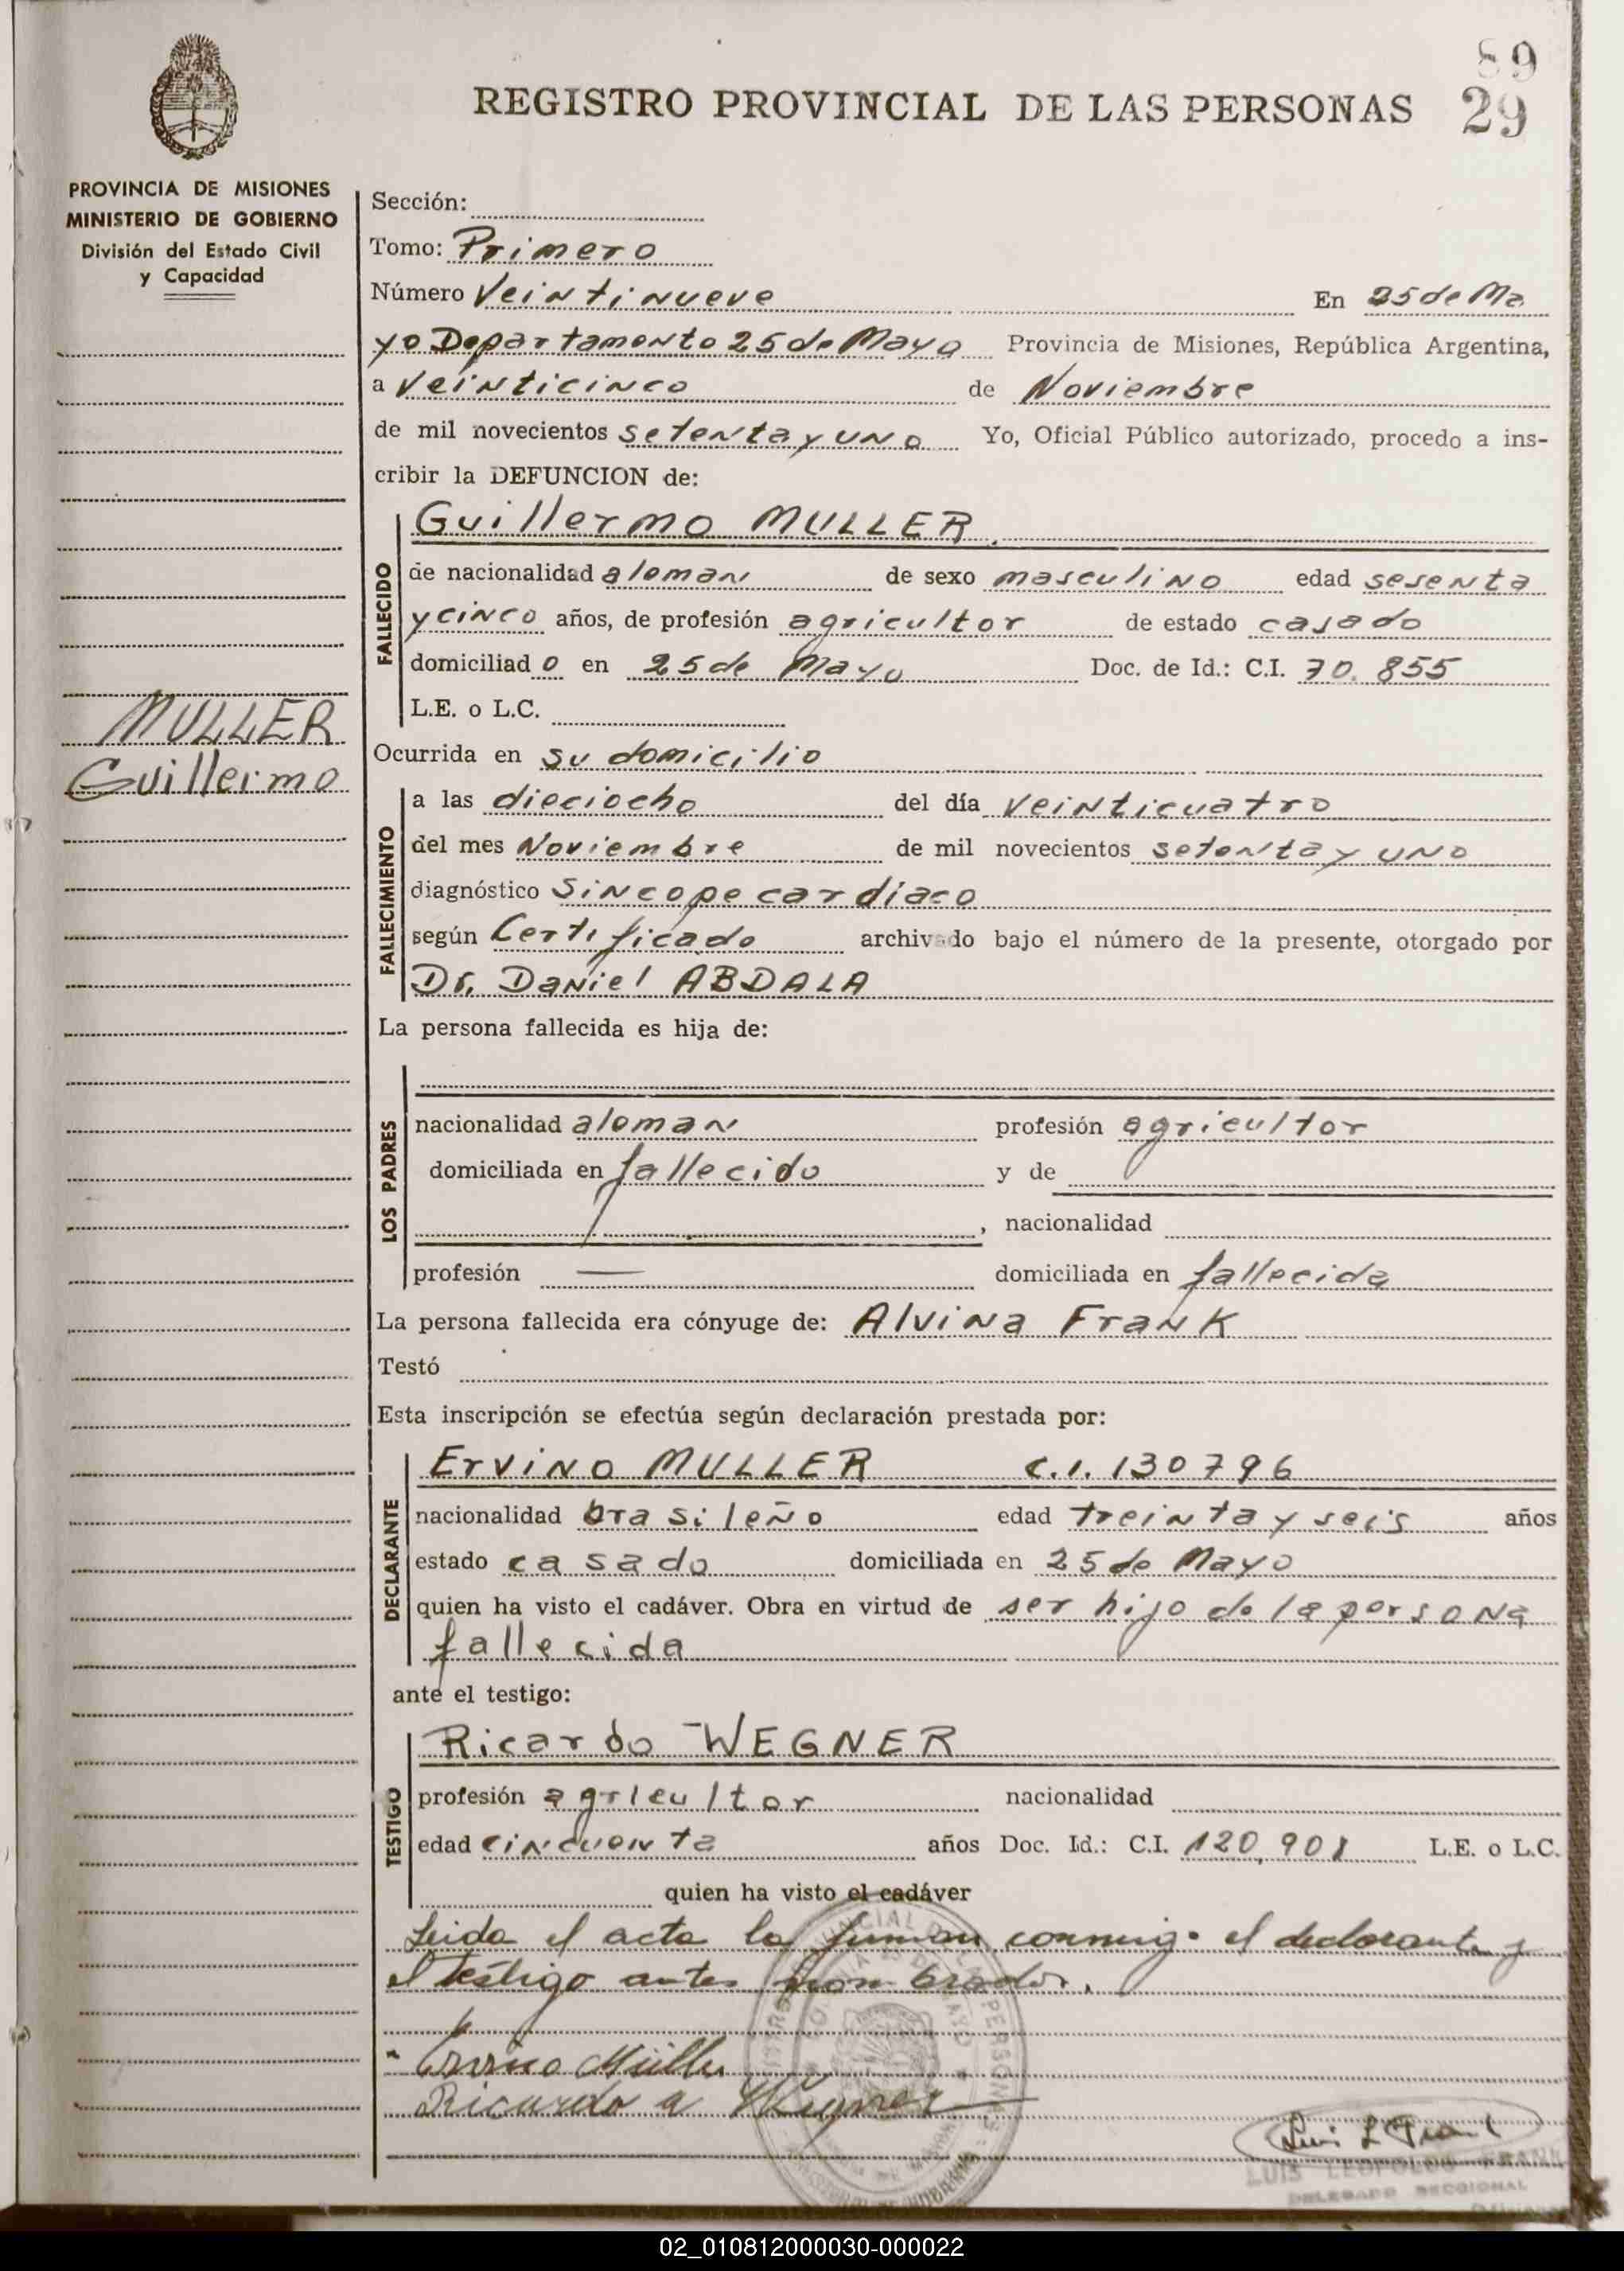 89
REGISTRO PROVINCIAL DE LAS PERSONAS 29
PROVINCIA DE MISIONES
MINISTERIO DE GOBIERNO
División del Estado Civil
y Capacidad
MULLER
Guillermo
Sección:
Tomo: Primero
Número Veintinueve En 25 de Ma
yo Departamento 25 de Mayo Provincia de Misiones, República Argentina,
a Veinticinco de Noviembre
de mil novecientos setenta y uno Yo, Oficial Público autorizado, procedo a ins-
cribir la DEFUNCION de:
FALLECIDO
Guillermo MULLER
de nacionalidad aleman de sexo masculino edad sesenta
y cinco años, de profesión agricultor de estado casado
domiciliad o en 25 de Mayo Doc. de Id.: C.I. 70.855
L.E. o L.C.
Ocurrida en su domicilio
FALLECIMIENTO
a las dieciocho del día veinticuatro
del mes Noviembre de mil novecientos setenta y uno
diagnóstico Sincope cardiaco
según Certificado archivado bajo el número de la presente, otorgado por
Dr. Daniel ABDALA
La persona fallecida es hija de:
LOS PADRES
nacionalidad aleman profesión agricultor
domiciliada en fallecido y de
, nacionalidad
profesión — domiciliada en fallecida
La persona fallecida era cónyuge de: Alvina Frank
Testó
Esta inscripción se efectúa según declaración prestada por:
DECLARANTE
Ervino MULLER C.I. 130796
nacionalidad brasileño edad treinta y seis años
estado casado domiciliada en 25 de Mayo
quien ha visto el cadáver. Obra en virtud de ser hijo de la persona
fallecida
ante el testigo:
TESTIGO
Ricardo WEGNER
profesión agricultor nacionalidad
edad cincuenta años Doc. Id.: C.I. 120.901 L.E. o L.C.
quien ha visto el cadáver
Leida el acta la firman conmigo el declarante y
el testigo antes nombrados.
Ervino Müller
Ricardo a Wegner
Luis L Frank
LUIS LEOPOLDO FRANK
DELEGADO SECCIONAL
02_010812000030-000022